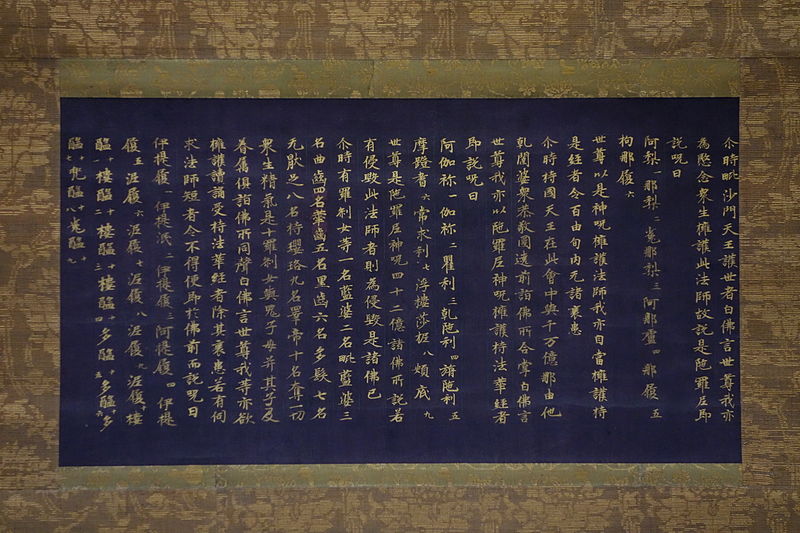 尒時毗沙門天王護世者白佛言世尊我亦
為愍念衆生擁護此法師故說是陁羅尼即
說呪曰
阿梨一那梨二㝹那梨三阿那盧四那履五
拘那履六
世尊以是神呪擁護法師我亦自當擁護持
是經者令百由旬內无諸衰患
尒時持國天王在此會中與千万億那由他
乹闥婆衆恭敬圍遶前詣佛所合掌白佛言
世尊我亦以陁羅尼神呪擁護持法華經者
即說呪曰
阿伽祢一伽祢二瞿利三乹陁利四旃陁利五
摩蹬耆六常求利七浮樓莎柅八頞底九
世尊是陁羅尼神呪四十二億諸佛所說若
有侵毀此法師者則為侵毀是諸佛已
尒時有羅剎女等一名藍婆二名毗藍婆三
名曲齒四名華齒五名黑齒六名多髮七名
无猒足八名持瓔珞九名睪帝十名奪一切
衆生精氣是十羅剎女與鬼子母并其子及
眷属俱詣佛所同聲白佛言世尊我等亦欲
擁護讀誦受持法華經者除其衰患若有伺
求法師短者令不得便即於佛前而說呪曰
伊提履一伊提泯二伊提履三阿提履四伊提
履五泥履六泥履七泥履八泥履九泥履十樓
醯十一樓醯十二樓醯十三樓醯十四多醯十五多醯十六多
醯十七兜醯十八㝹醯十九